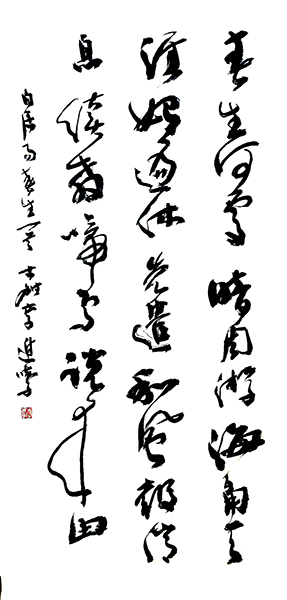 春生何處暗周游海角天
涯始遍休先遣和風報消
息續教啼鳥說来由
白居易春生